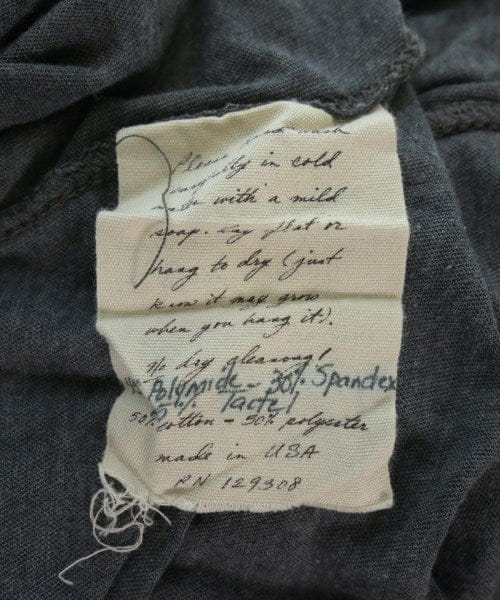 Please hand wash
carefully in cold
water with a mild
soap. Lay flat or
hang to dry (just
know it may grow
when you hang it).
No dry cleaning!
Polymide - 30% Spandex
Tactel
50% cotton - 50% polyester
made in USA
RN 129308